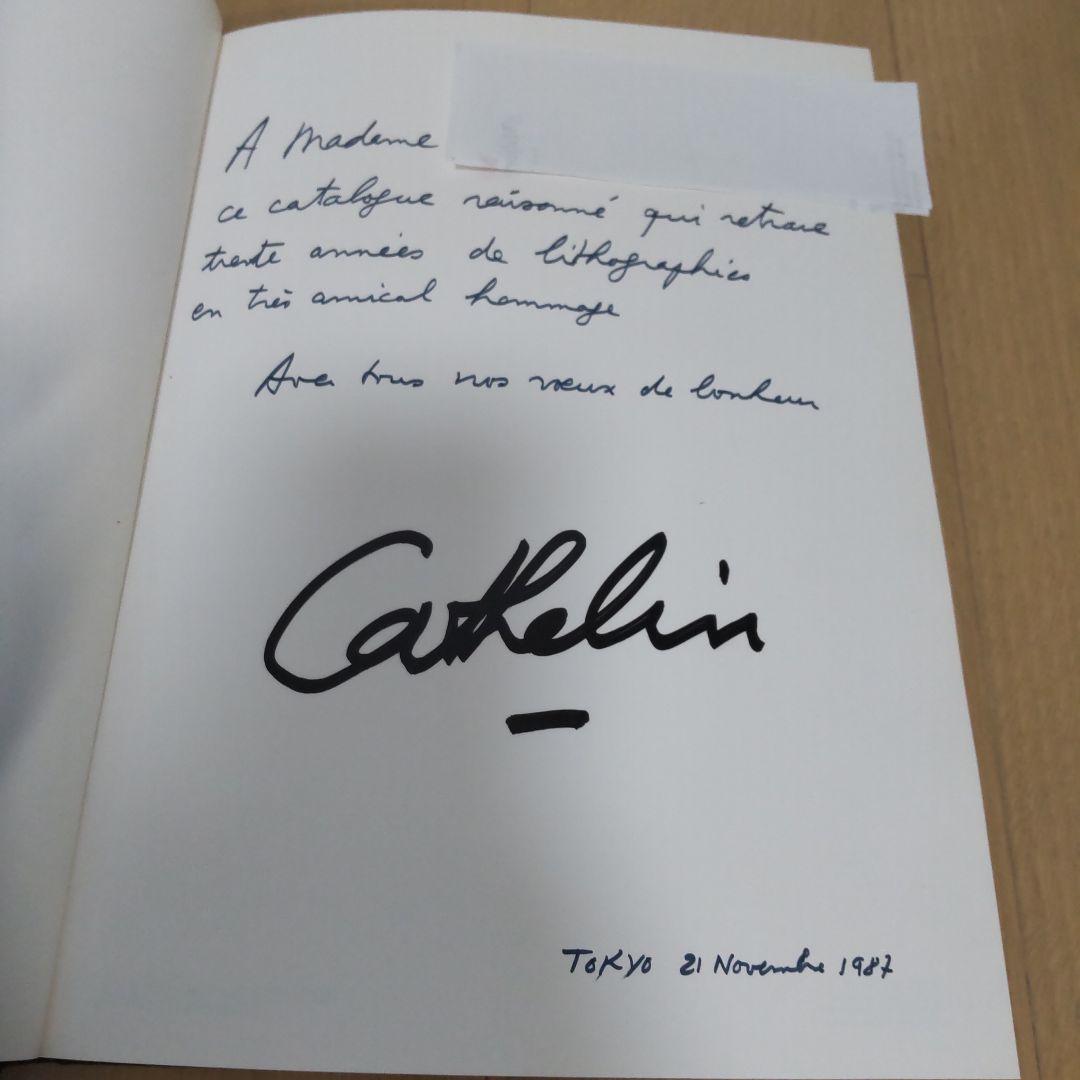 A Madame
ce catalogue raisonné qui retrace
trente années de lithographies
en très amical hommage
Avec tous nos vœux de bonheur
Cathelin
TOKYO 21 Novembre 1987